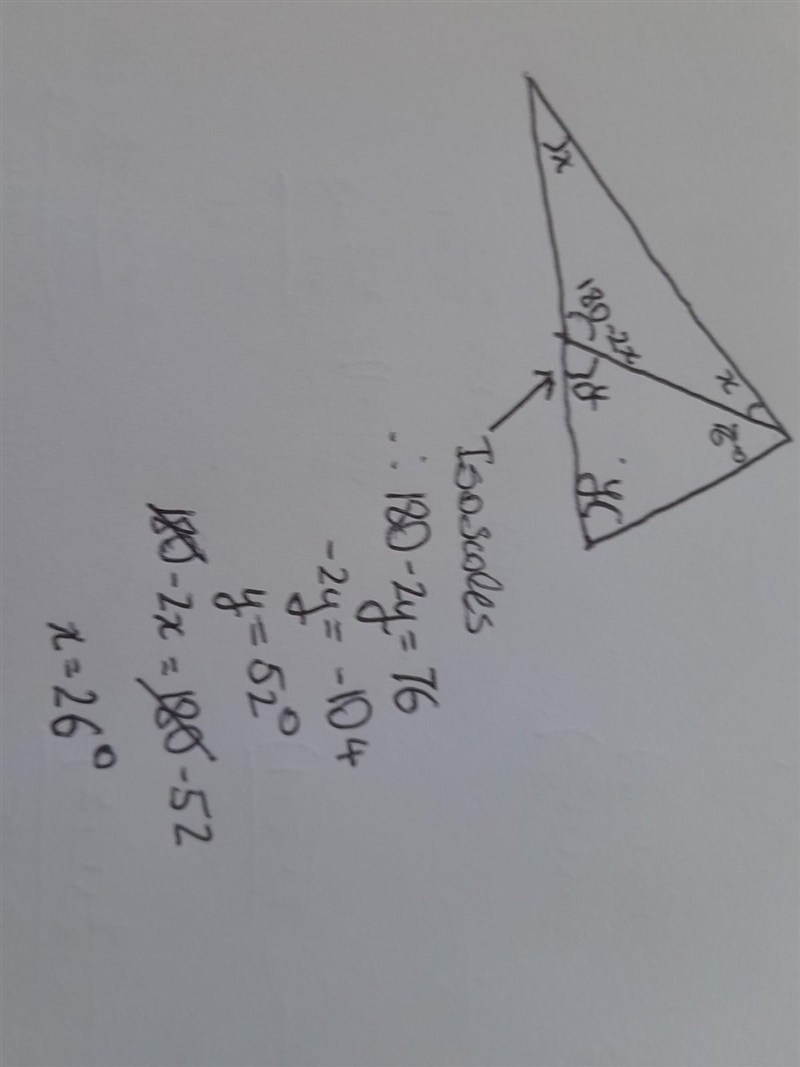 x
x
180-2x
76°
y
y
Isosceles
∴ 180 - 2y = 76
-2y = -104
y = 52°
180 - 2x = 180 - 52
x = 26°